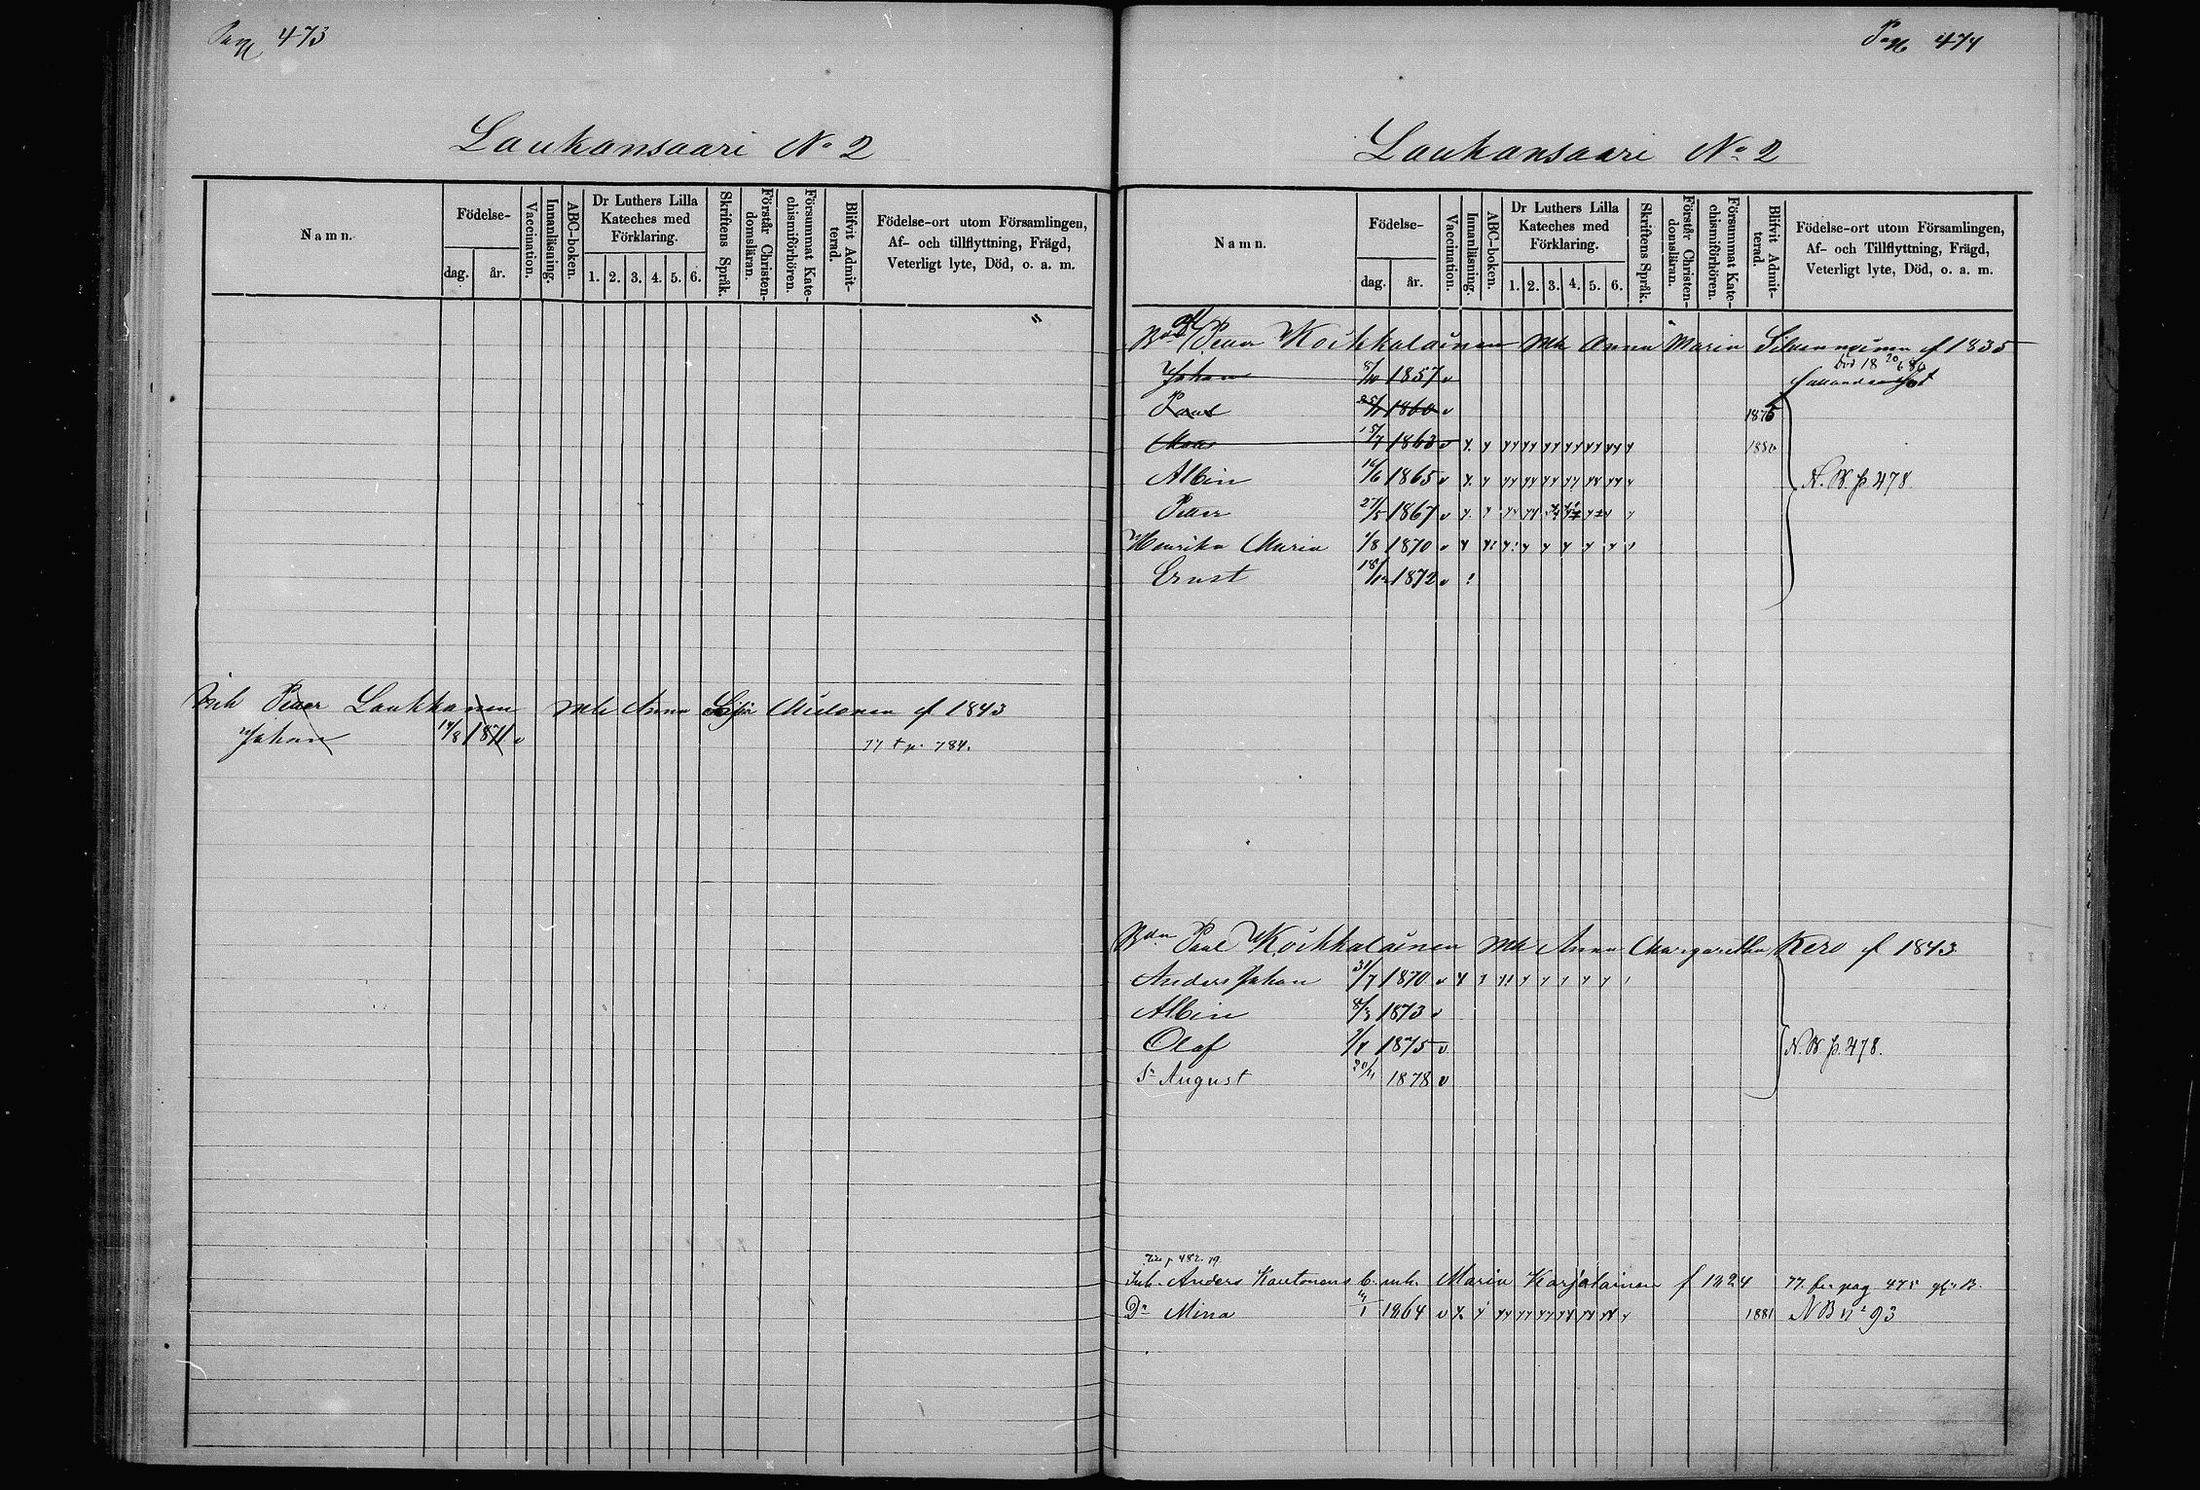 Pag 473
Laukansaari No 2
Namn.
Födelse-
dag.
år.
Vaccination.
Innanläsning.
ABC-boken.
Dr Luthers Lilla
Kateches med
Förklaring.
1. 2. 3. 4. 5. 6.
Skriftens Språk.
Förstår Christen-
domsläran.
Försummat Kate-
chismiförhören.
Blifvit Admit-
terad.
Födelse-ort utom Församlingen,
Af- och tillflyttning, Frägd,
Veterligt lyte, Död, o. a. m.
Petter Laukkanen mh Anna f 1843
Johan 14/8 1871 v
77 t p. 784.
Pag 474
Laukansaari No 2
Namn.
Födelse-
dag.
år.
Vaccination.
Innanläsning.
ABC-boken.
Dr Luthers Lilla
Kateches med
Förklaring.
1. 2. 3. 4. 5. 6.
Skriftens Språk.
Förstår Christen-
domsläran.
Försummat Kate-
chismiförhören.
Blifvit Admit-
terad.
Födelse-ort utom Församlingen,
Af- och Tillflyttning, Frägd,
Veterligt lyte, Död, o. a. m.
Petter Koikkalainen mh Anna Maria f 1835
Johan 1857 v
Paul 1860 v 1875
Måns 15/7 1863 v 1880
Albin 16/6 1865 v N. B. p 478
Petter 27/5 1867 v
Henrika Maria 1/8 1870 v
Ernst 18/12 1872 v
Bdn Paul Koikkalainen mh Anna Margaretha Kero f 1843
Anders Johan 31/7 1870 v
Albin 8/3 1873 v
Olof 1875 v N. B. p. 478.
Sn August 20/11 1878 v
Inh. Anders Kautonens mh. Maria Karjalainen f 1824 77. fr. pag 475
Dr Mina 1864 v 1881 N B no 93